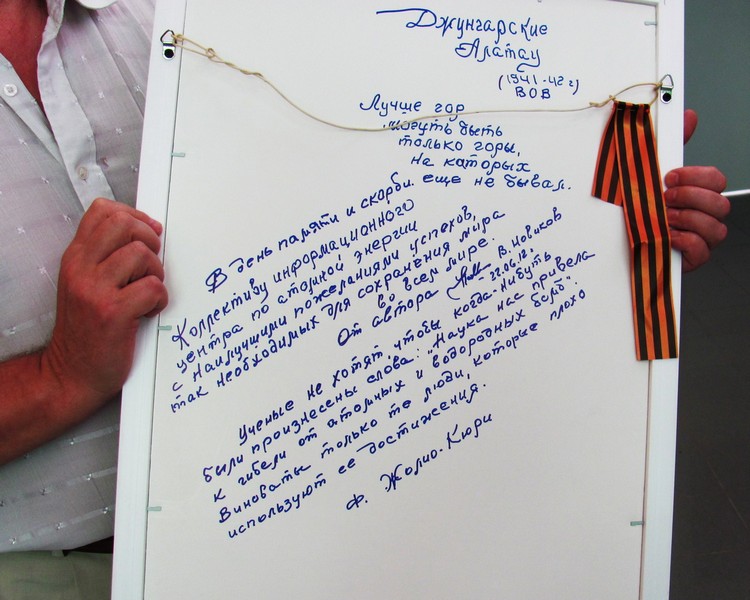 Джунгарские
Алатау
(1941-42г)
ВОВ
Лучше гор
могуть быть
только горы,
на которых
еще не бывал.
В день памяти и скорби.
Коллективу информационного
центра по атомной энергии
с наилучшими пожеланиями успехов,
так необходимых для сохранения мира
во всем мире.
От автора В. Новиков
22.06.12.
Ученые не хотят, чтобы когда-нибудь
были произнесены слова: "Наука нас привела
к гибели от атомных и водородных бомб".
Виноваты только те люди, которые плохо
используют ее достижения.
Ф. Жолио-Кюри